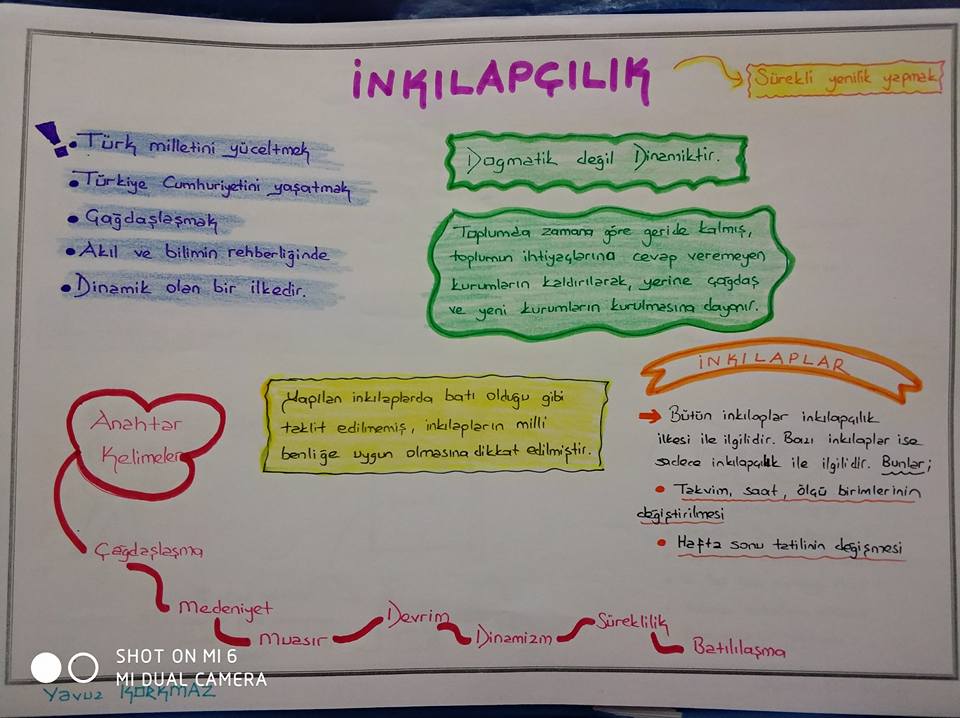 İNKILAPÇILIK
Sürekli yenilik yapmak
! • Türk milletini yüceltmek
• Türkiye Cumhuriyetini yaşatmak
• Çağdaşlaşmak
• Akıl ve bilimin rehberliğinde
• Dinamik olan bir ilkedir.
Dogmatik değil Dinamiktir.
Toplumda zamana göre geride kalmış,
toplumun ihtiyaçlarına cevap veremeyen
kurumların kaldırılarak, yerine çağdaş
ve yeni kurumların kurulmasına dayanır.
Yapılan inkılaplarda batı olduğu gibi
taklit edilmemiş, inkılapların milli
benliğe uygun olmasına dikkat edilmiştir.
İNKILAPLAR
→ Bütün inkılaplar inkılapçılık
ilkesi ile ilgilidir. Bazı inkılaplar ise
sadece inkılapçılık ile ilgilidir. Bunlar;
• Takvim, saat, ölçü birimlerinin
değiştirilmesi
• Hafta sonu tatilinin değişmesi
Anahtar
Kelimeler
Çağdaşlaşma
Medeniyet
Muasır
Devrim
Dinamizm
Süreklilik
Batılılaşma
SHOT ON MI 6
MI DUAL CAMERA
Yavuz KORKMAZ